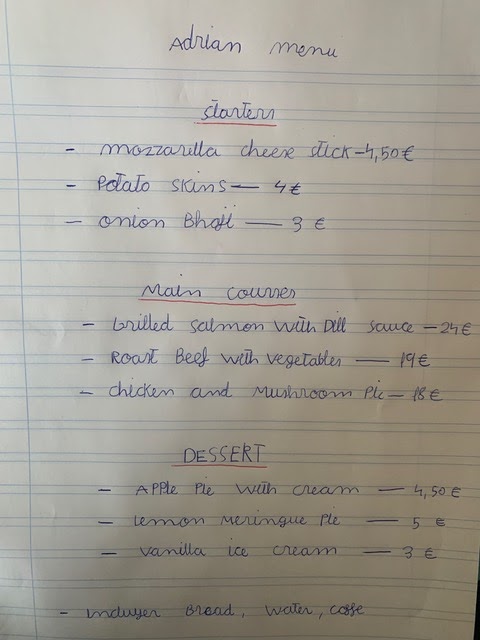 Adrian menu
Starters
- mozzarilla cheese stick - 4,50 €
- Potato skins — 4 €
- onion Bhaji — 3 €
Main courses
- Grilled salmon with Dill sauce - 24 €
- Roast Beef with vegetables — 19 €
- chicken and Mushroom Pie - 18 €
DESSERT
- APPle Pie with cream — 4,50 €
- lemon Meringue Pie — 5 €
- vanilla ice cream — 3 €
- induyer Bread, water, coffe